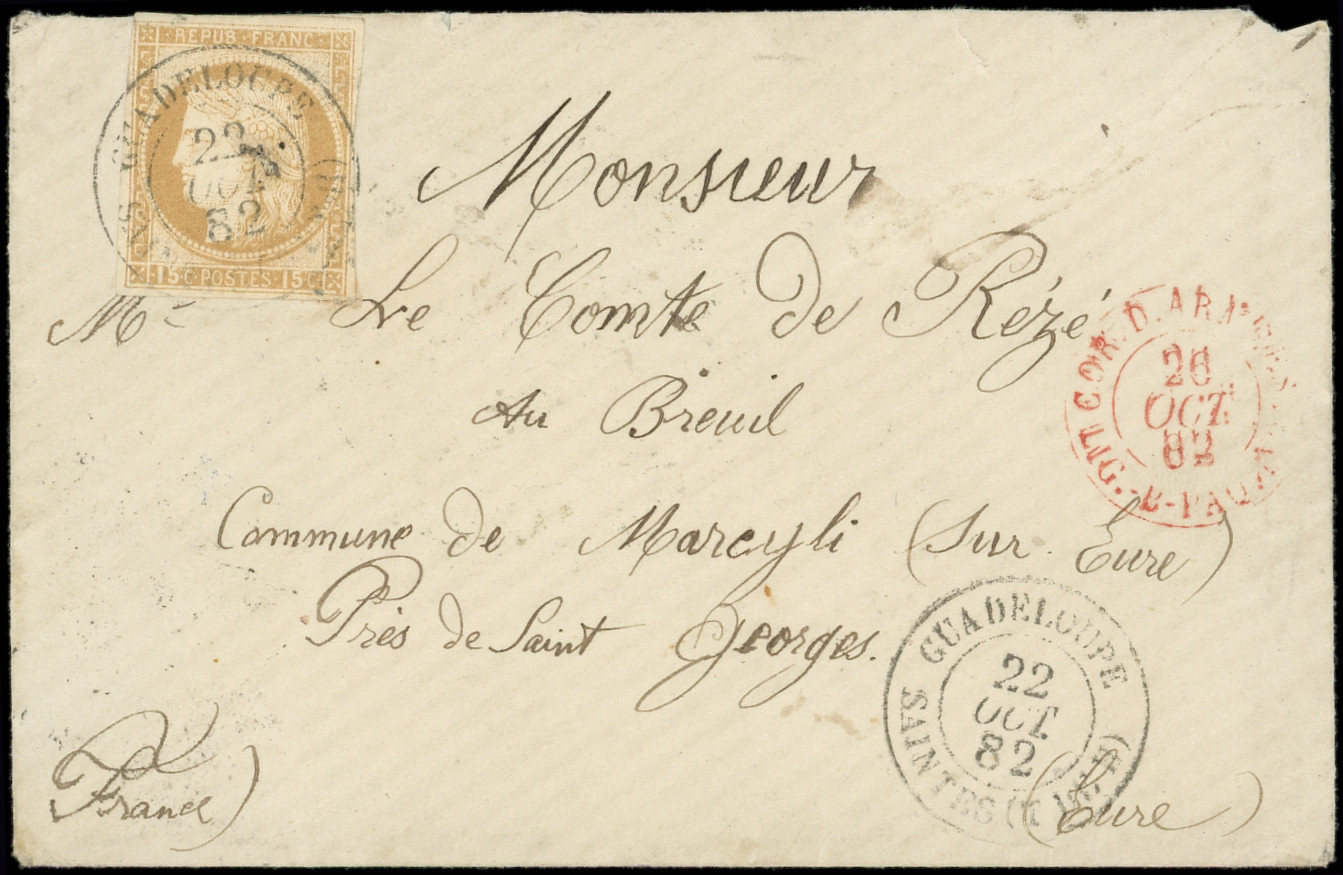 REPUB · FRANC
15c POSTES 15c
GUADELOUPE
22
OCT
82
Monsieur
Mr Le Comte de Rézé
Au Breuil
Commune de Marcyli (Sur Eure)
Près de Saint Georges.
(Eure)
(France)
COR. D. ARM
LIG. B - PAQ.
26
OCT.
82
GUADELOUPE
SAINTES
22
OCT
82